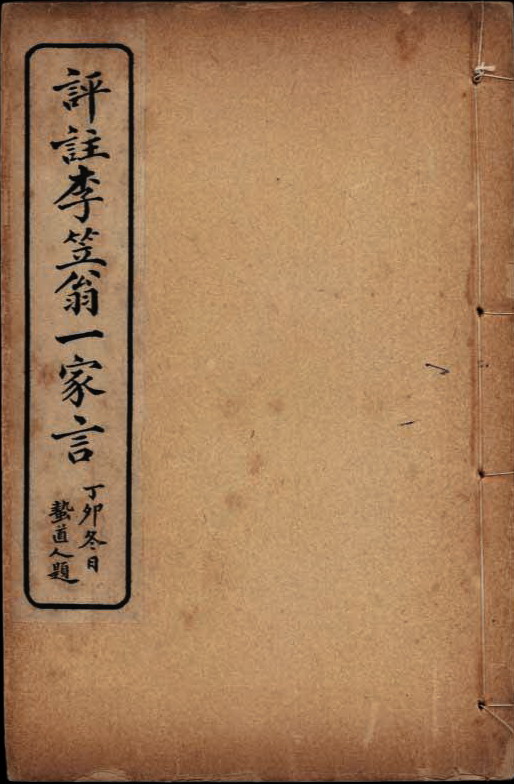 評註李笠翁一家言
丁卯冬日
蟄道人題